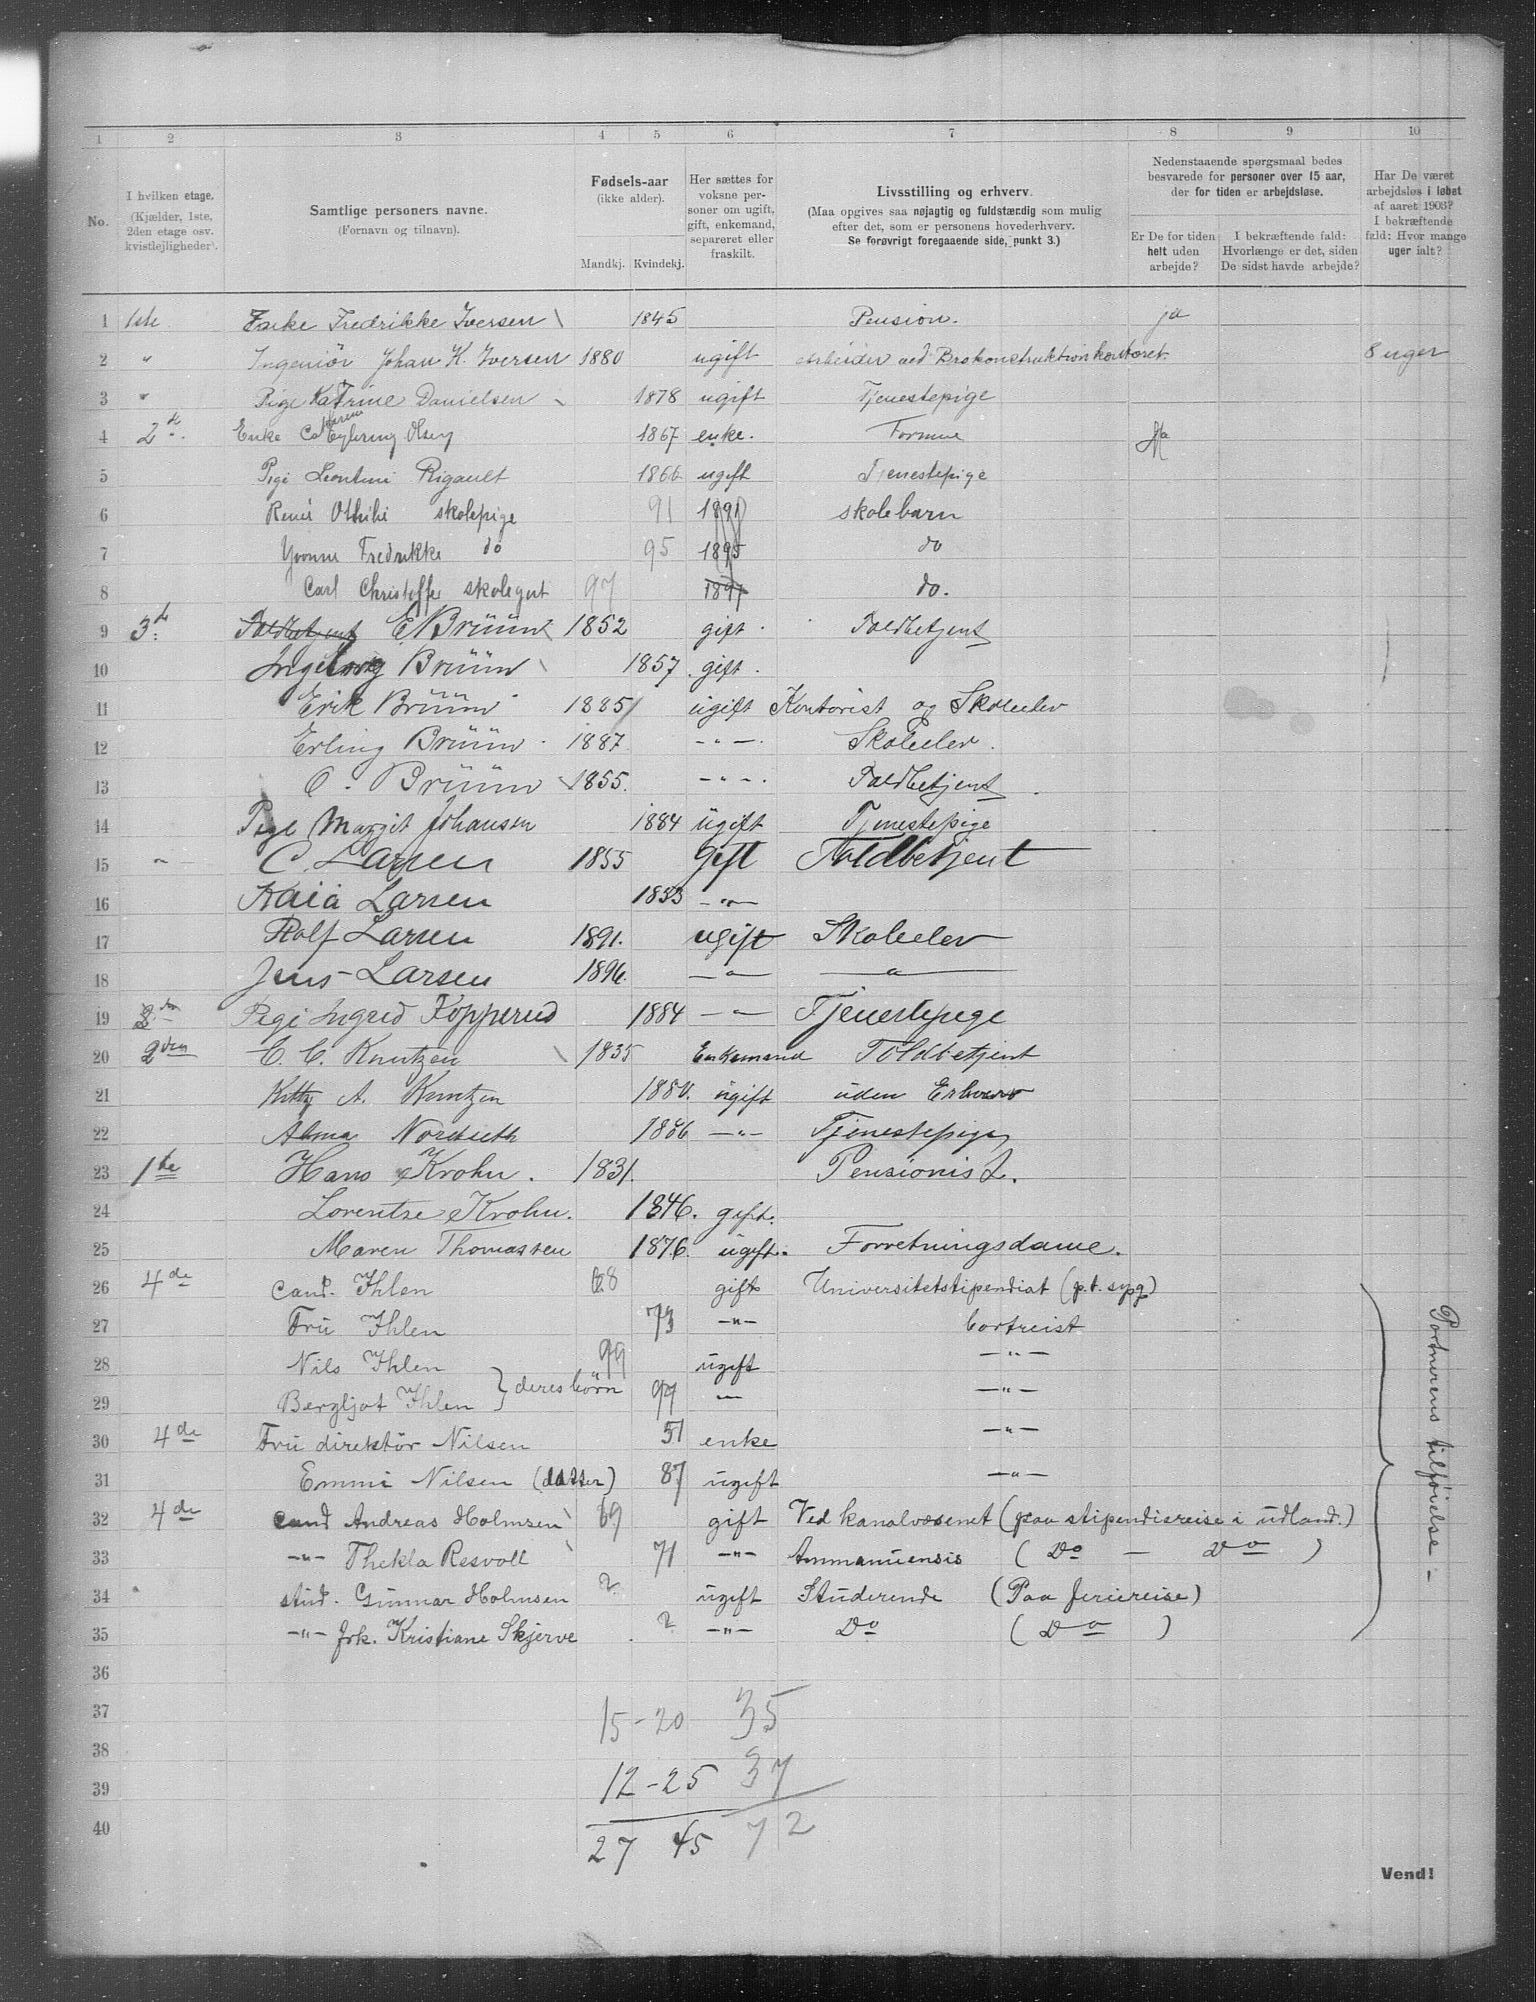 1 2 3 4 5 6 7 8 9 10
No.
I hvilken etage. (Kjælder, 1ste, 2den etage osv. kvistlejligheder).
Samtlige personers navne. (Fornavn og tilnavn).
Fødsels-aar (ikke alder).
Mandkj. Kvindekj.
Her sættes for voksne personer om ugift, gift, enkemand, separeret eller fraskilt.
Livsstilling og erhverv.
(Maa opgives saa nøjagtig og fuldstændig som mulig efter det, som er personens hovederhverv. Se forøvrigt foregaaende side, punkt 3.)
Nedenstaaende spørgsmaal bedes besvarede for personer over 15 aar, der for tiden er arbejdsløse.
Er De for tiden helt uden arbejde?
I bekræftende fald: Hvorlænge er det, siden De sidst havde arbejde?
Har De været arbejdsløs i løbet af aaret 1903? I bekræftende fald: Hvor mange uger ialt?
1 1ste Enke Fredrikke Iversen 1845 Pension. ja
2 " Ingeniör Johan K. Iversen 1880 ugift Arbeider ved Brokonstruktionkontoret. 8 uger
3 " Pige Katrine Danielsen 1878 ugift Tjenestepige
4 2d. Enke 1867 enke. Formue Ja
5 Pige Leontine Rigault 1866 ugift Tjenestepige
6 René Othilie skolepige 91 1891 skolebarn
7 Yvonne Fredrikke do 95 1895 do
8 Carl Christoffe skolegut 97 1897 do.
9 3d. Toldbetjent E Brüün 1852 gift Toldbetjent
10 Ingeborg Brüün 1857. gift.
11 Erik Brüün 1885 ugift Kontorist og Skoleelev
12 Erling Brüün 1887 - " - . Skoleelev.
13 O. Brüün 1855. - " - . Toldbetjent.
14 Pige Margit Johansen 1884 ugift Tjenestepige
15 " C. Larsen 1855 Gift Toldbetjent
16 Kaia Larsen 1853 - " -
17 Rolf Larsen 1891. ugift Skoleelev
18 Jens Larsen 1896. - " - - " -
19 Pige Ingrid Kopperud 1884 - " - Tjenestepige
20 2den C. C. Knutzen 1835 Enkemand Toldbetjent
21 Kitty A. Knutzen 1880. ugift uden Erhverv
22 Alma Nordseth 1886 - " - Tjenestepige
23 1ste Hans Krohn. 1831. Pensionist.
24 Lorentze Krohn. 1846. gift.
25 Maren Thomassen 1876. ugift. Forretningsdame.
26 4de Cand. Ihlen 68 gift Universitetstipendiat (p.t. sypg)
27 Fru Ihlen 73 - " - bortreist
28 Nils Ihlen 99 ugift - " -
29 Bergljot Ihlen } deres börn 97 - " - - " -
30 4de Fru direktör Nilsen 51 enke - " -
31 Emmi Nilsen (datter) 87 ugift - " -
32 4de Cand Andreas Holmsen 69 gift Ved kanalvæsenet (paa stipendiereise i udland.)
33 - " - Thekla Resvoll 71 - " - Ammanuensis (Do - Do)
34 stud. Gunnar Holmsen ? ugift Studerende (Paa feriereise)
35 - " - frk. Kristiane Skjerve ? - " - Do (Do)
Portnerens tilføielse -
36
37 15 - 20 35
38
39 12 - 25 37
40 27 45 72
Vend!